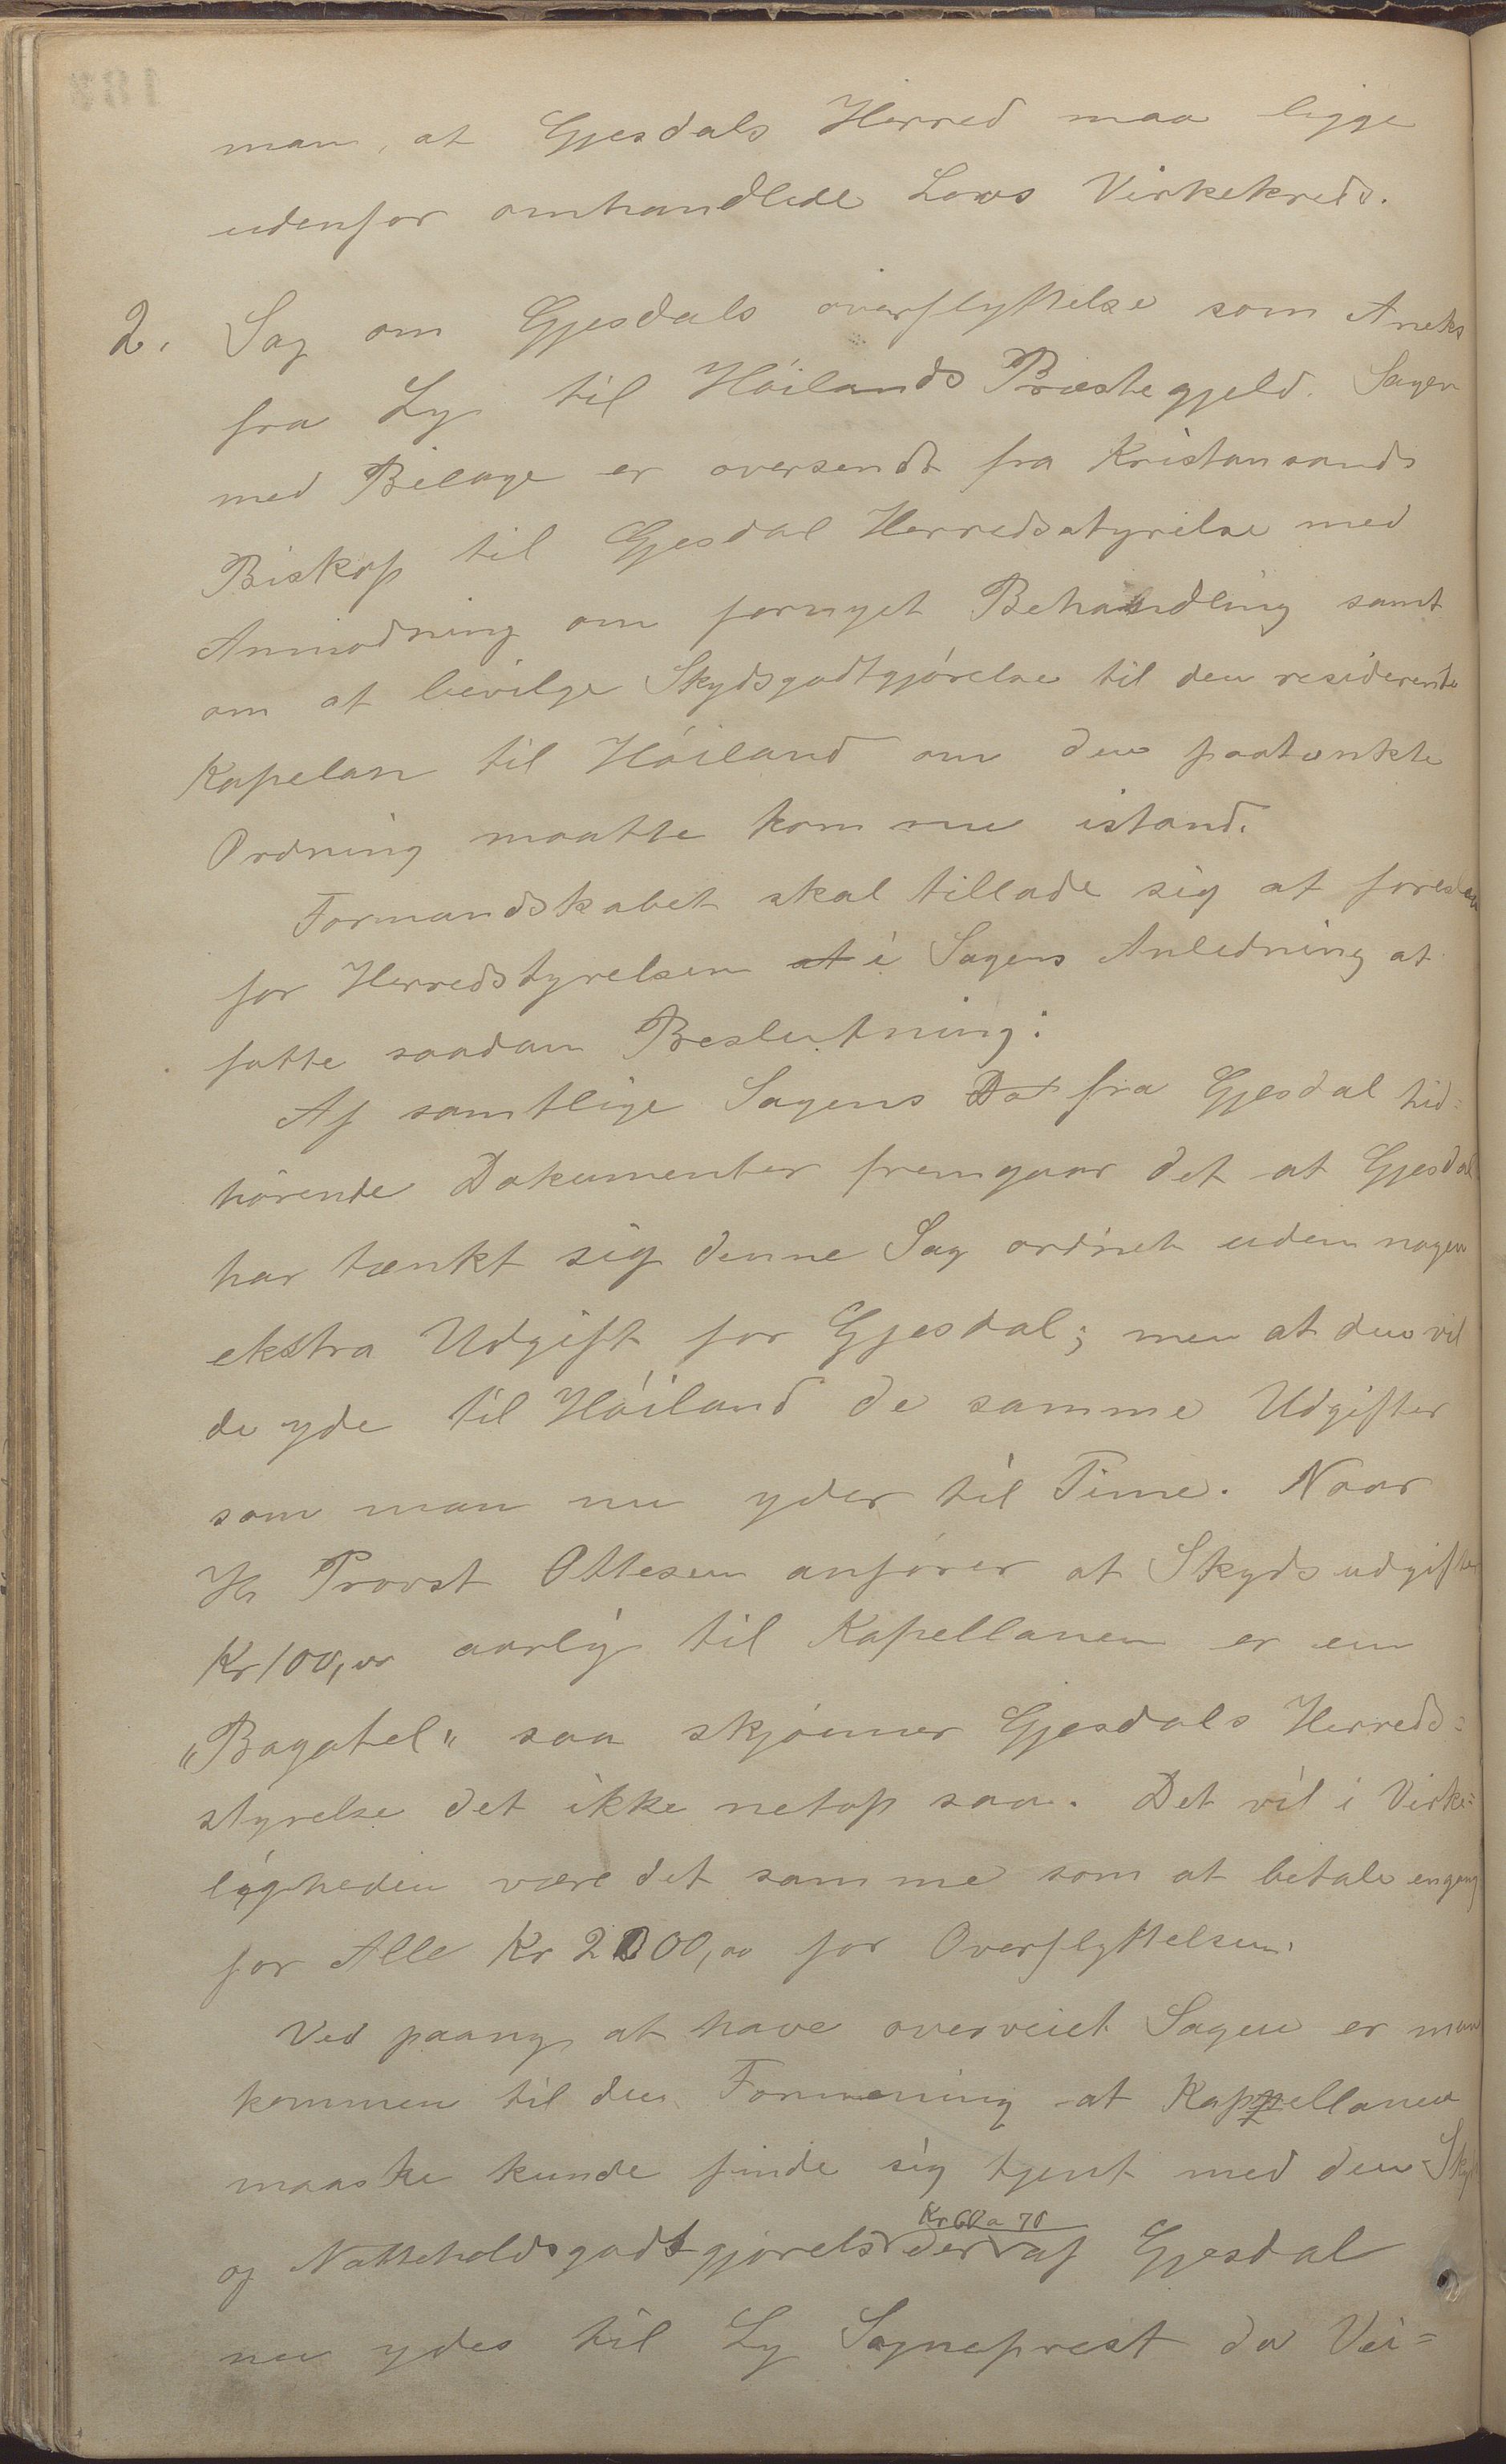 man, at Gjesdals Herred maa ligge
udenfor omhandlede Lovs Virkekreds.
2. Sag om Gjesdals overflyttelse som Aneks
fra Ly til Høilands Præstegjeld. Sagen
med Bilage er oversendt fra Kristansands
Biskop til Gjesdal Herredsstyrelse med
Anmodning om fornyet Behandling samt
om at bevilge Skydsgodtgjørelse til den residerende
Kapelan til Høiland om den paatænkte
Ordning maatte komme istand.
Formandskabet skal tillade sig at foreslaa
for Herredstyrelsen at i Sagens Anledning at
fatte saadan Beslutning:
Af samtlige Sagens Dot fra Gjesdal hid=
hørende Dokumenter fremgaar det at Gjesdal
har tænkt sig denne Sag ordnet uden nogen
ekstra Udgift for Gjesdal; men at den vil
de yde til Høiland de samme Udgifter
som man nu yder til Time. Naar
Hr Provst Ottesen anfører at Skydsudgifter
Kr 100,00 aarlig til Kapellanen er en
"Bagatel" saa skjønner Gjesdals Herreds=
styrelse det ikke netop saa. Det vil i Virke=
ligheden være det samme som at betale engang
for Alle Kr 2000,00 for Overflyttelsen.
Ved paany at have overveiet Sagen er man
kommen til den Formening at Kappellanen
maaske kunde finde sig tjent med den Skyds
Kr 60 a 70
og Natteholdsgodtgjørelse der af Gjesdal
nu ydes til Ly Sogneprest da Vei=